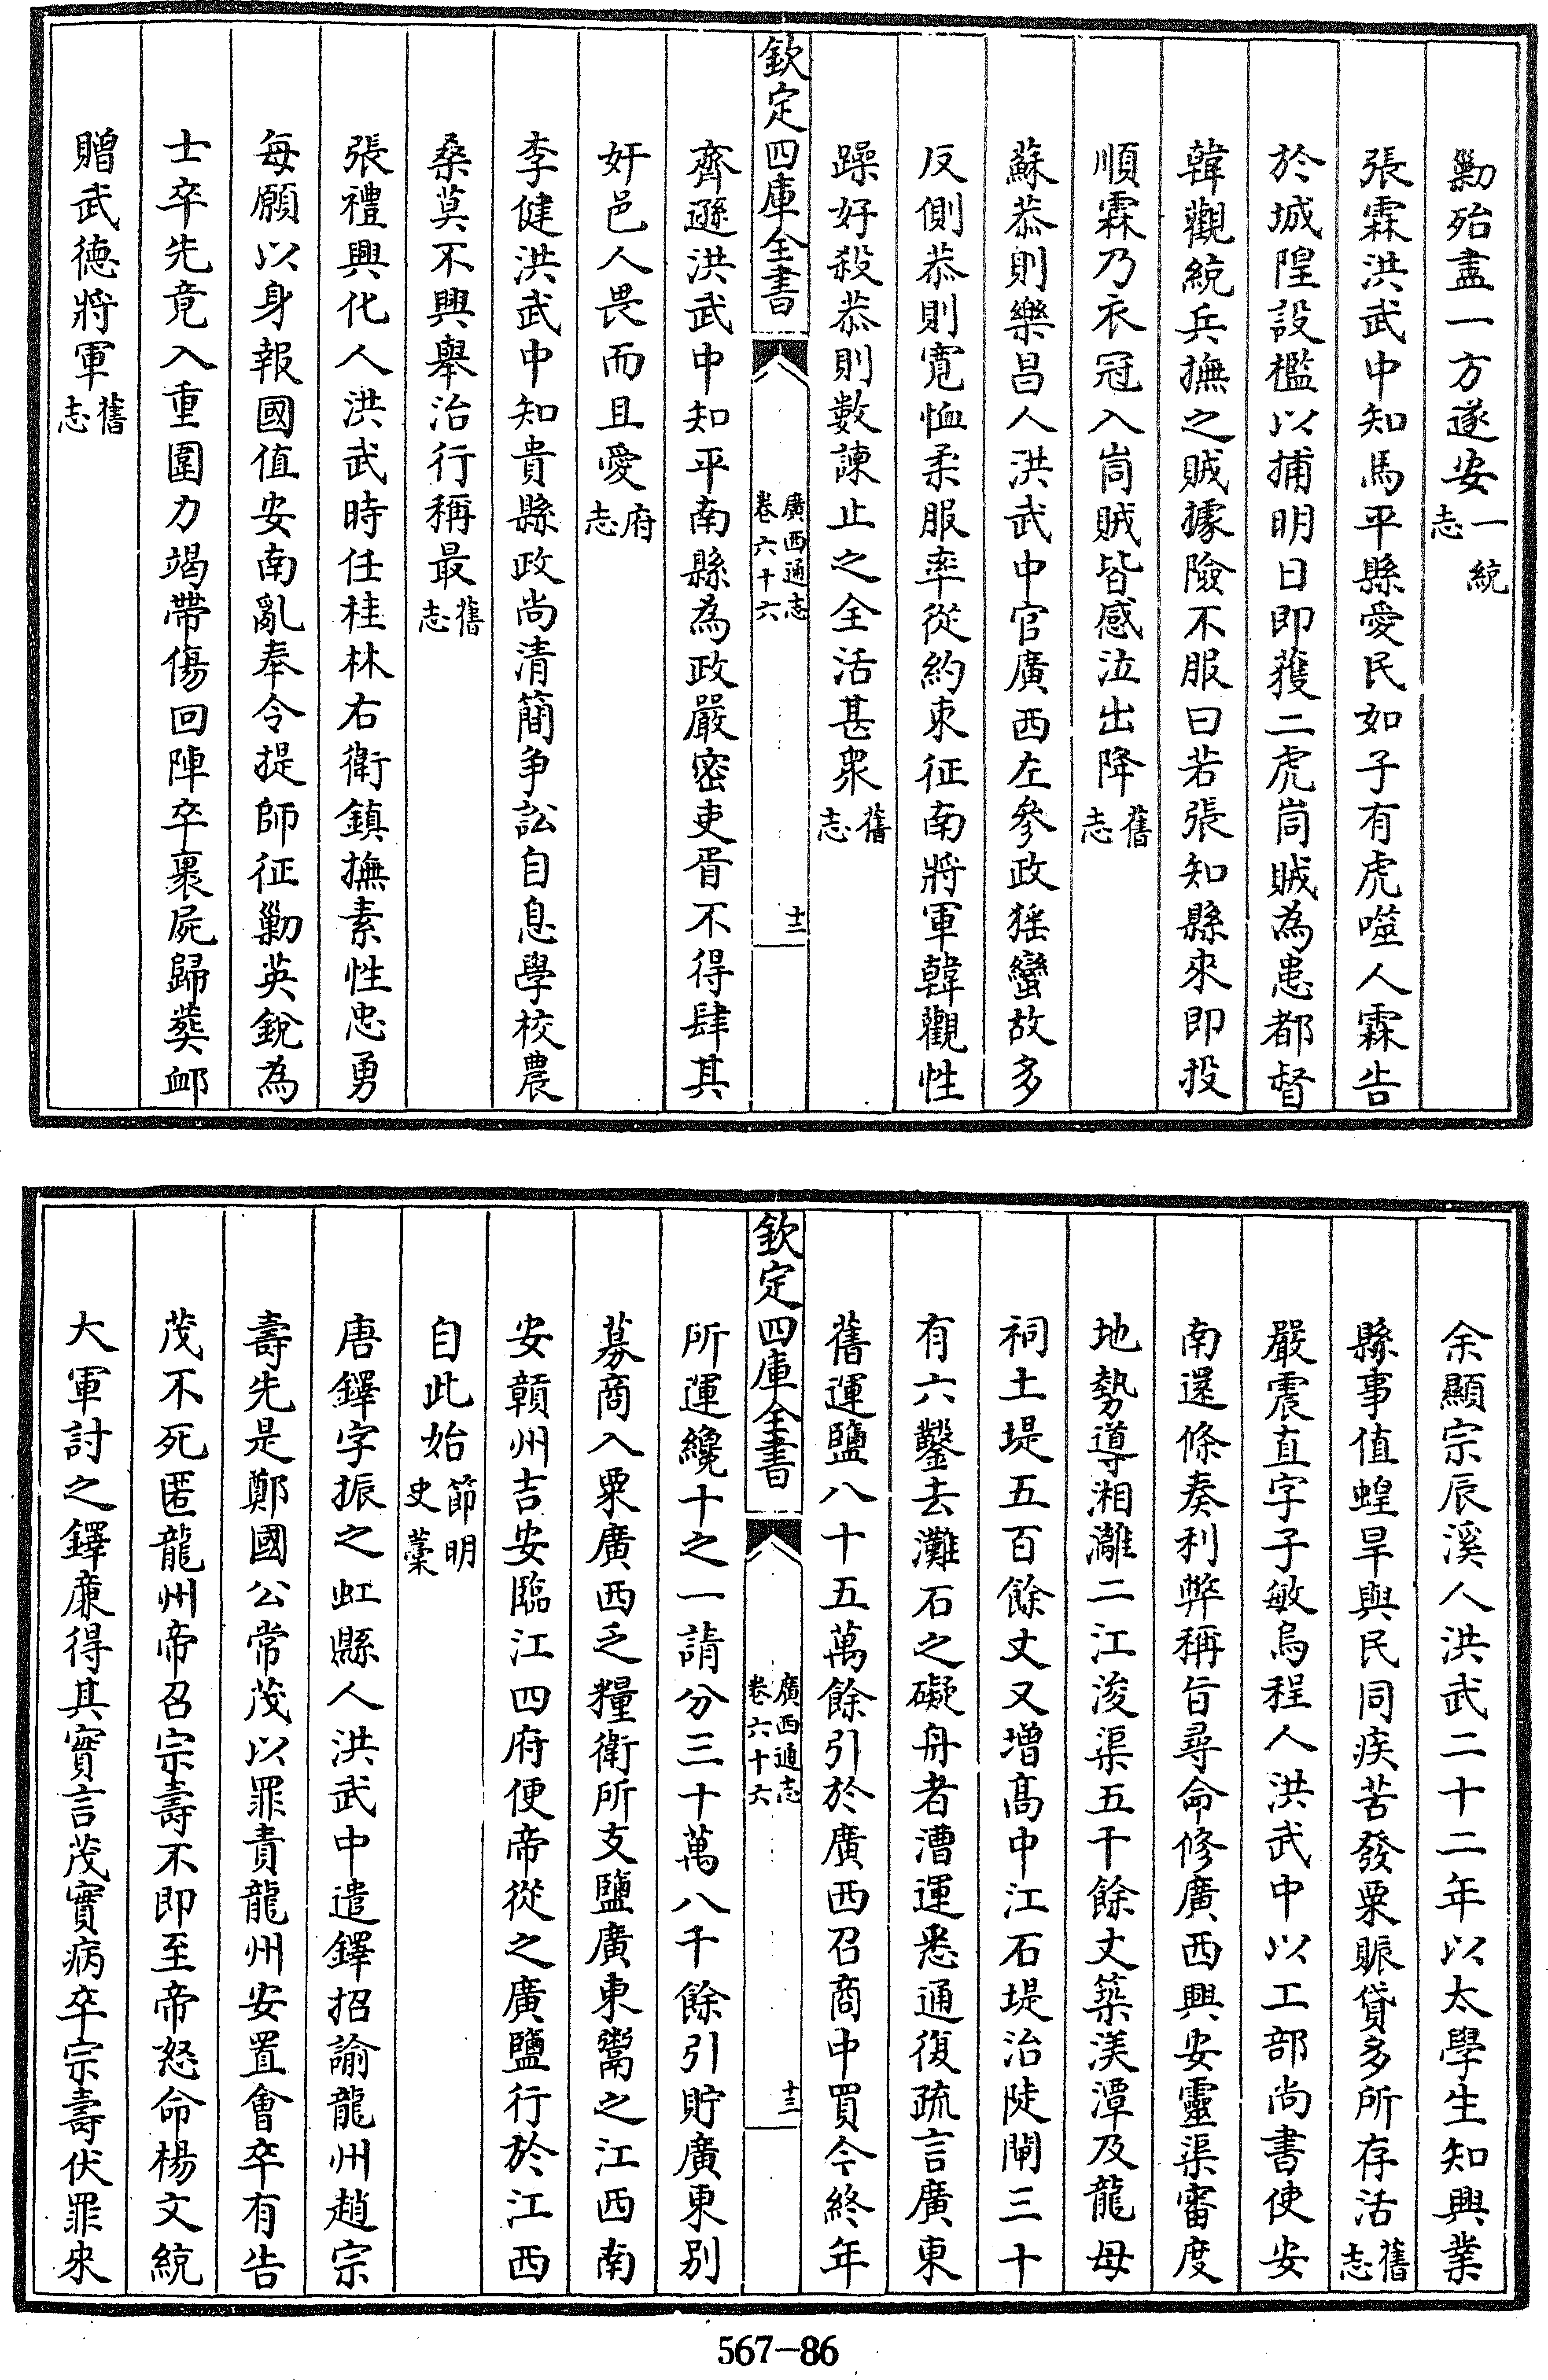 勦殆盡一方遂安一統志
張霖洪武中知馬平縣愛民如子有虎噬人霖告
於城隍設檻以捕明日即獲二虎峝賊為患都督
韓觀統兵撫之賊據險不服曰若張知縣來即投
順霖乃衣冠入峝賊皆感泣出降舊志
蘇恭則樂昌人洪武中官廣西左參政猺蠻故多
反側恭則寛恤柔服率從約束征南將軍韓觀性
躁好殺恭則數諫止之全活甚衆舊志
欽定四庫全書
廣西通志
卷六十六
十二
齊遜洪武中知平南縣為政嚴密吏胥不得肆其
奸邑人畏而且愛府志
李健洪武中知貴縣政尚清簡爭訟自息學校農
桑莫不興舉治行稱最舊志
張禮興化人洪武時任桂林右衛鎮撫素性忠勇
每願以身報國值安南亂奉令提師征勦英銳為
士卒先竟入重圍力竭帶傷回陣卒裹屍歸葬卹
贈武德將軍舊志
余顯宗辰溪人洪武二十二年以太學生知興業
縣事值蝗旱與民同疾苦發粟賑貸多所存活舊志
嚴震直字子敏烏程人洪武中以工部尚書使安
南還條奏利弊稱旨尋命修廣西興安靈渠審度
地勢導湘灕二江浚渠五千餘丈築渼潭及龍母
祠土堤五百餘丈又增髙中江石堤治陡閘三十
有六鑿去灘石之礙舟者漕運悉通復疏言廣東
舊運鹽八十五萬餘引於廣西召商中買今終年
欽定四庫全書
廣西通志
卷六十六
十三
所運纔十之一請分三十萬八千餘引貯廣東别
募商入粟廣西乏糧衛所支鹽廣東鬻之江西南
安贛州吉安臨江四府便帝從之廣鹽行於江西
自此始節明史藁
唐鐸字振之虹縣人洪武中遣鐸招諭龍州趙宗
壽先是鄭國公常茂以罪責龍州安置會卒有告
茂不死匿龍州帝召宗壽不即至帝怒命楊文統
大軍討之鐸廉得其實言茂實病卒宗壽伏罪來
567-86